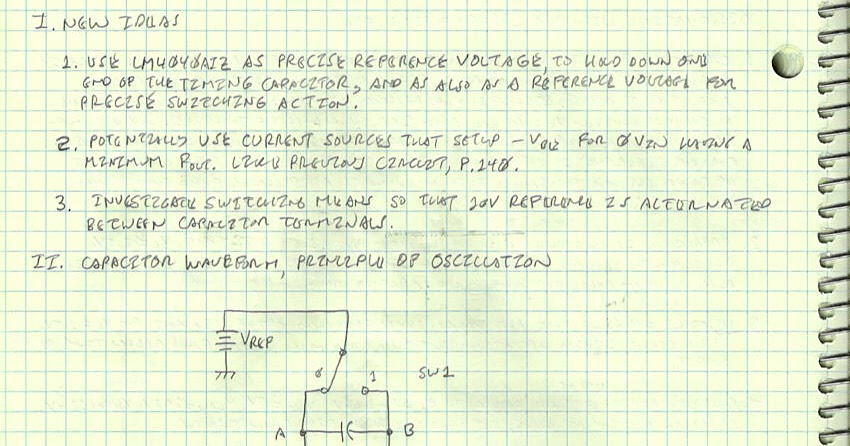 I. NEW IDEAS
1. USE LM4040AIZ AS PRECISE REFERENCE VOLTAGE, TO HOLD DOWN ONE
END OF THE TIMING CAPACITOR, AND AS ALSO AS A REFERENCE VOLTAGE FOR
PRECISE SWITCHING ACTION.
2. POTENTIALLY USE CURRENT SOURCES THAT SETUP -V FOR 0VIN HAVING A
MINIMUM FOUT. LIKE PREVIOUS CIRCUIT, P.140.
3. INVESTIGATE SWITCHING MEANS SO THAT 10V REFERENCE IS ALTERNATED
BETWEEN CAPACITOR TERMINALS.
II. CAPACITOR WAVEFORM, PRINCIPLE OF OSCILLATION
VREF
0 1 SW1
A B